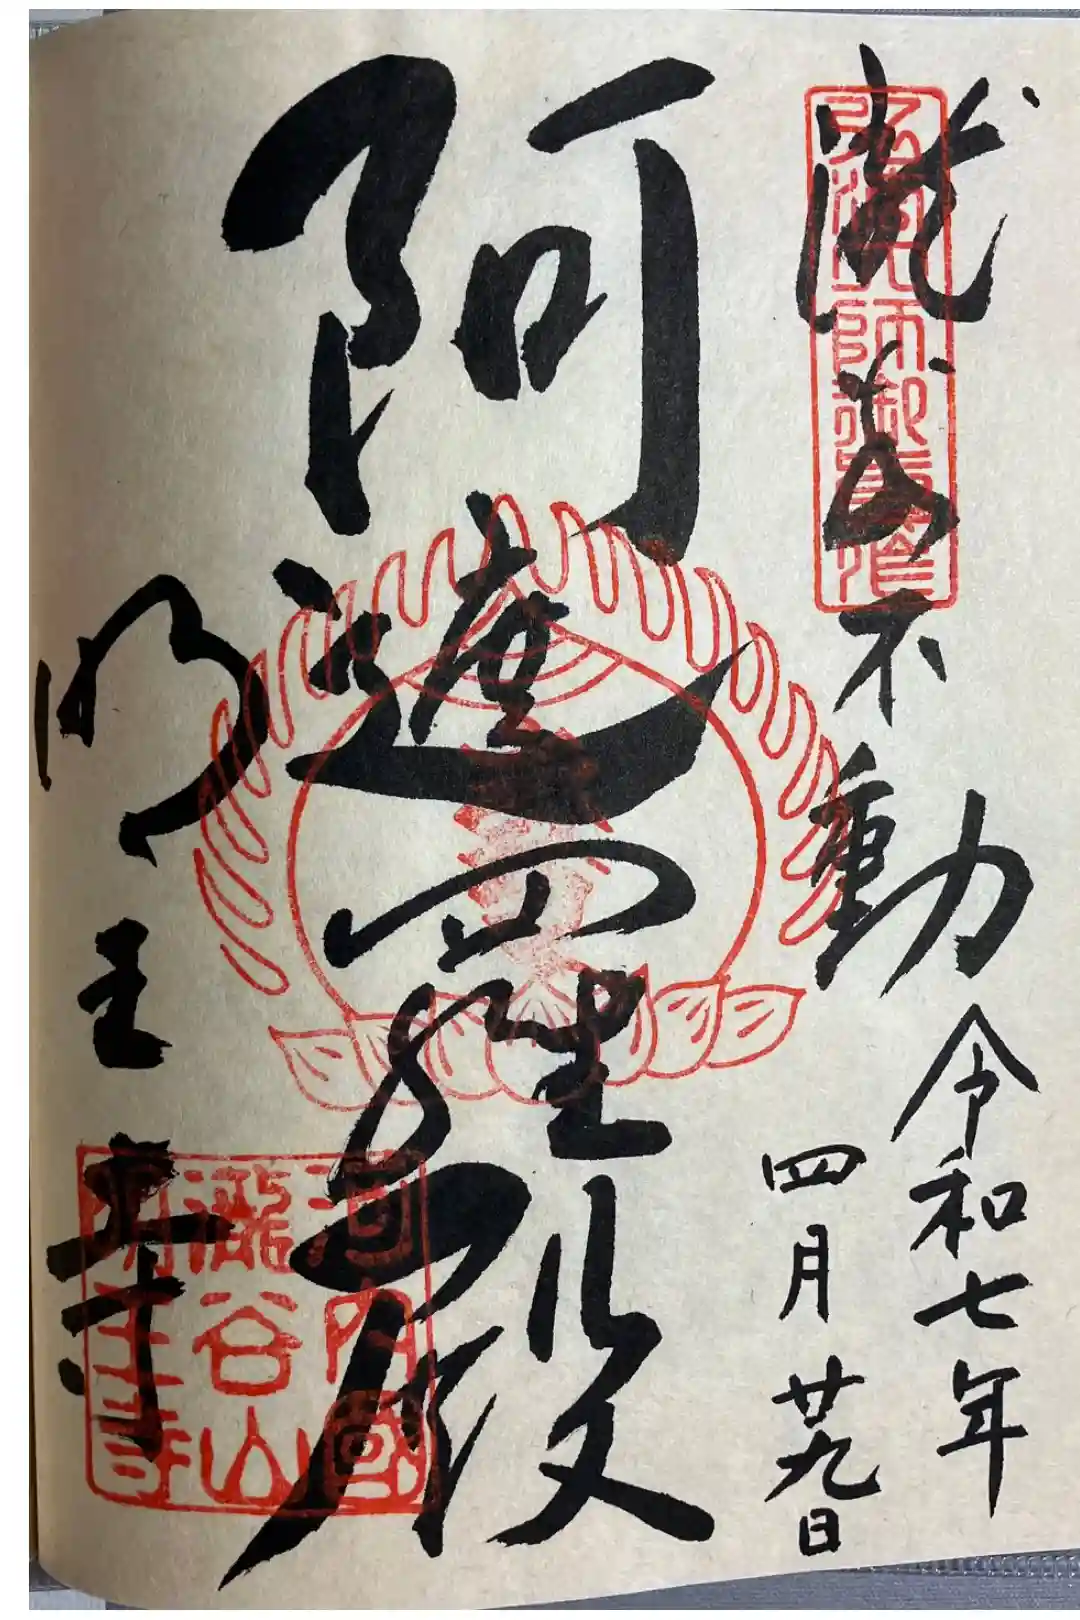 瀧谷不動
令和七年
四月廿九日
阿遮羅殿
明王寺
弘法大師御
河内國
瀧谷山
明王寺